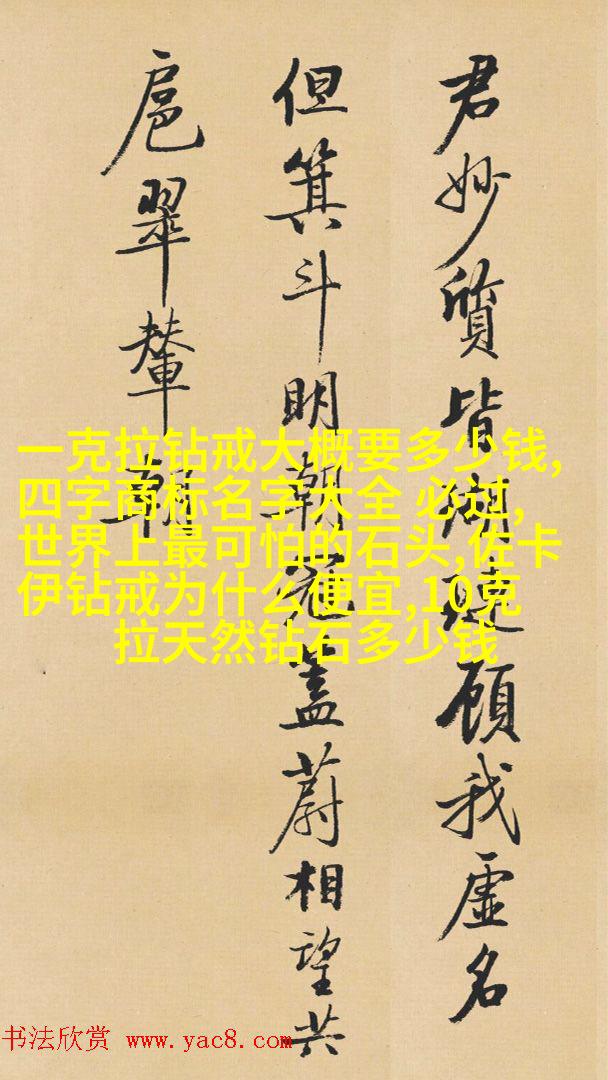 君妙質皆瑚璉顾我虚名
但箕斗明朝冠盖蔚相望共
扈翠輦朝
一克拉钻戒大概要多少钱,
四字商标名字大全 必过,
世界上最可怕的石头,佐卡
伊钻戒为什么便宜,10克
拉天然钻石多少钱
书法欣赏 www.yac8.com